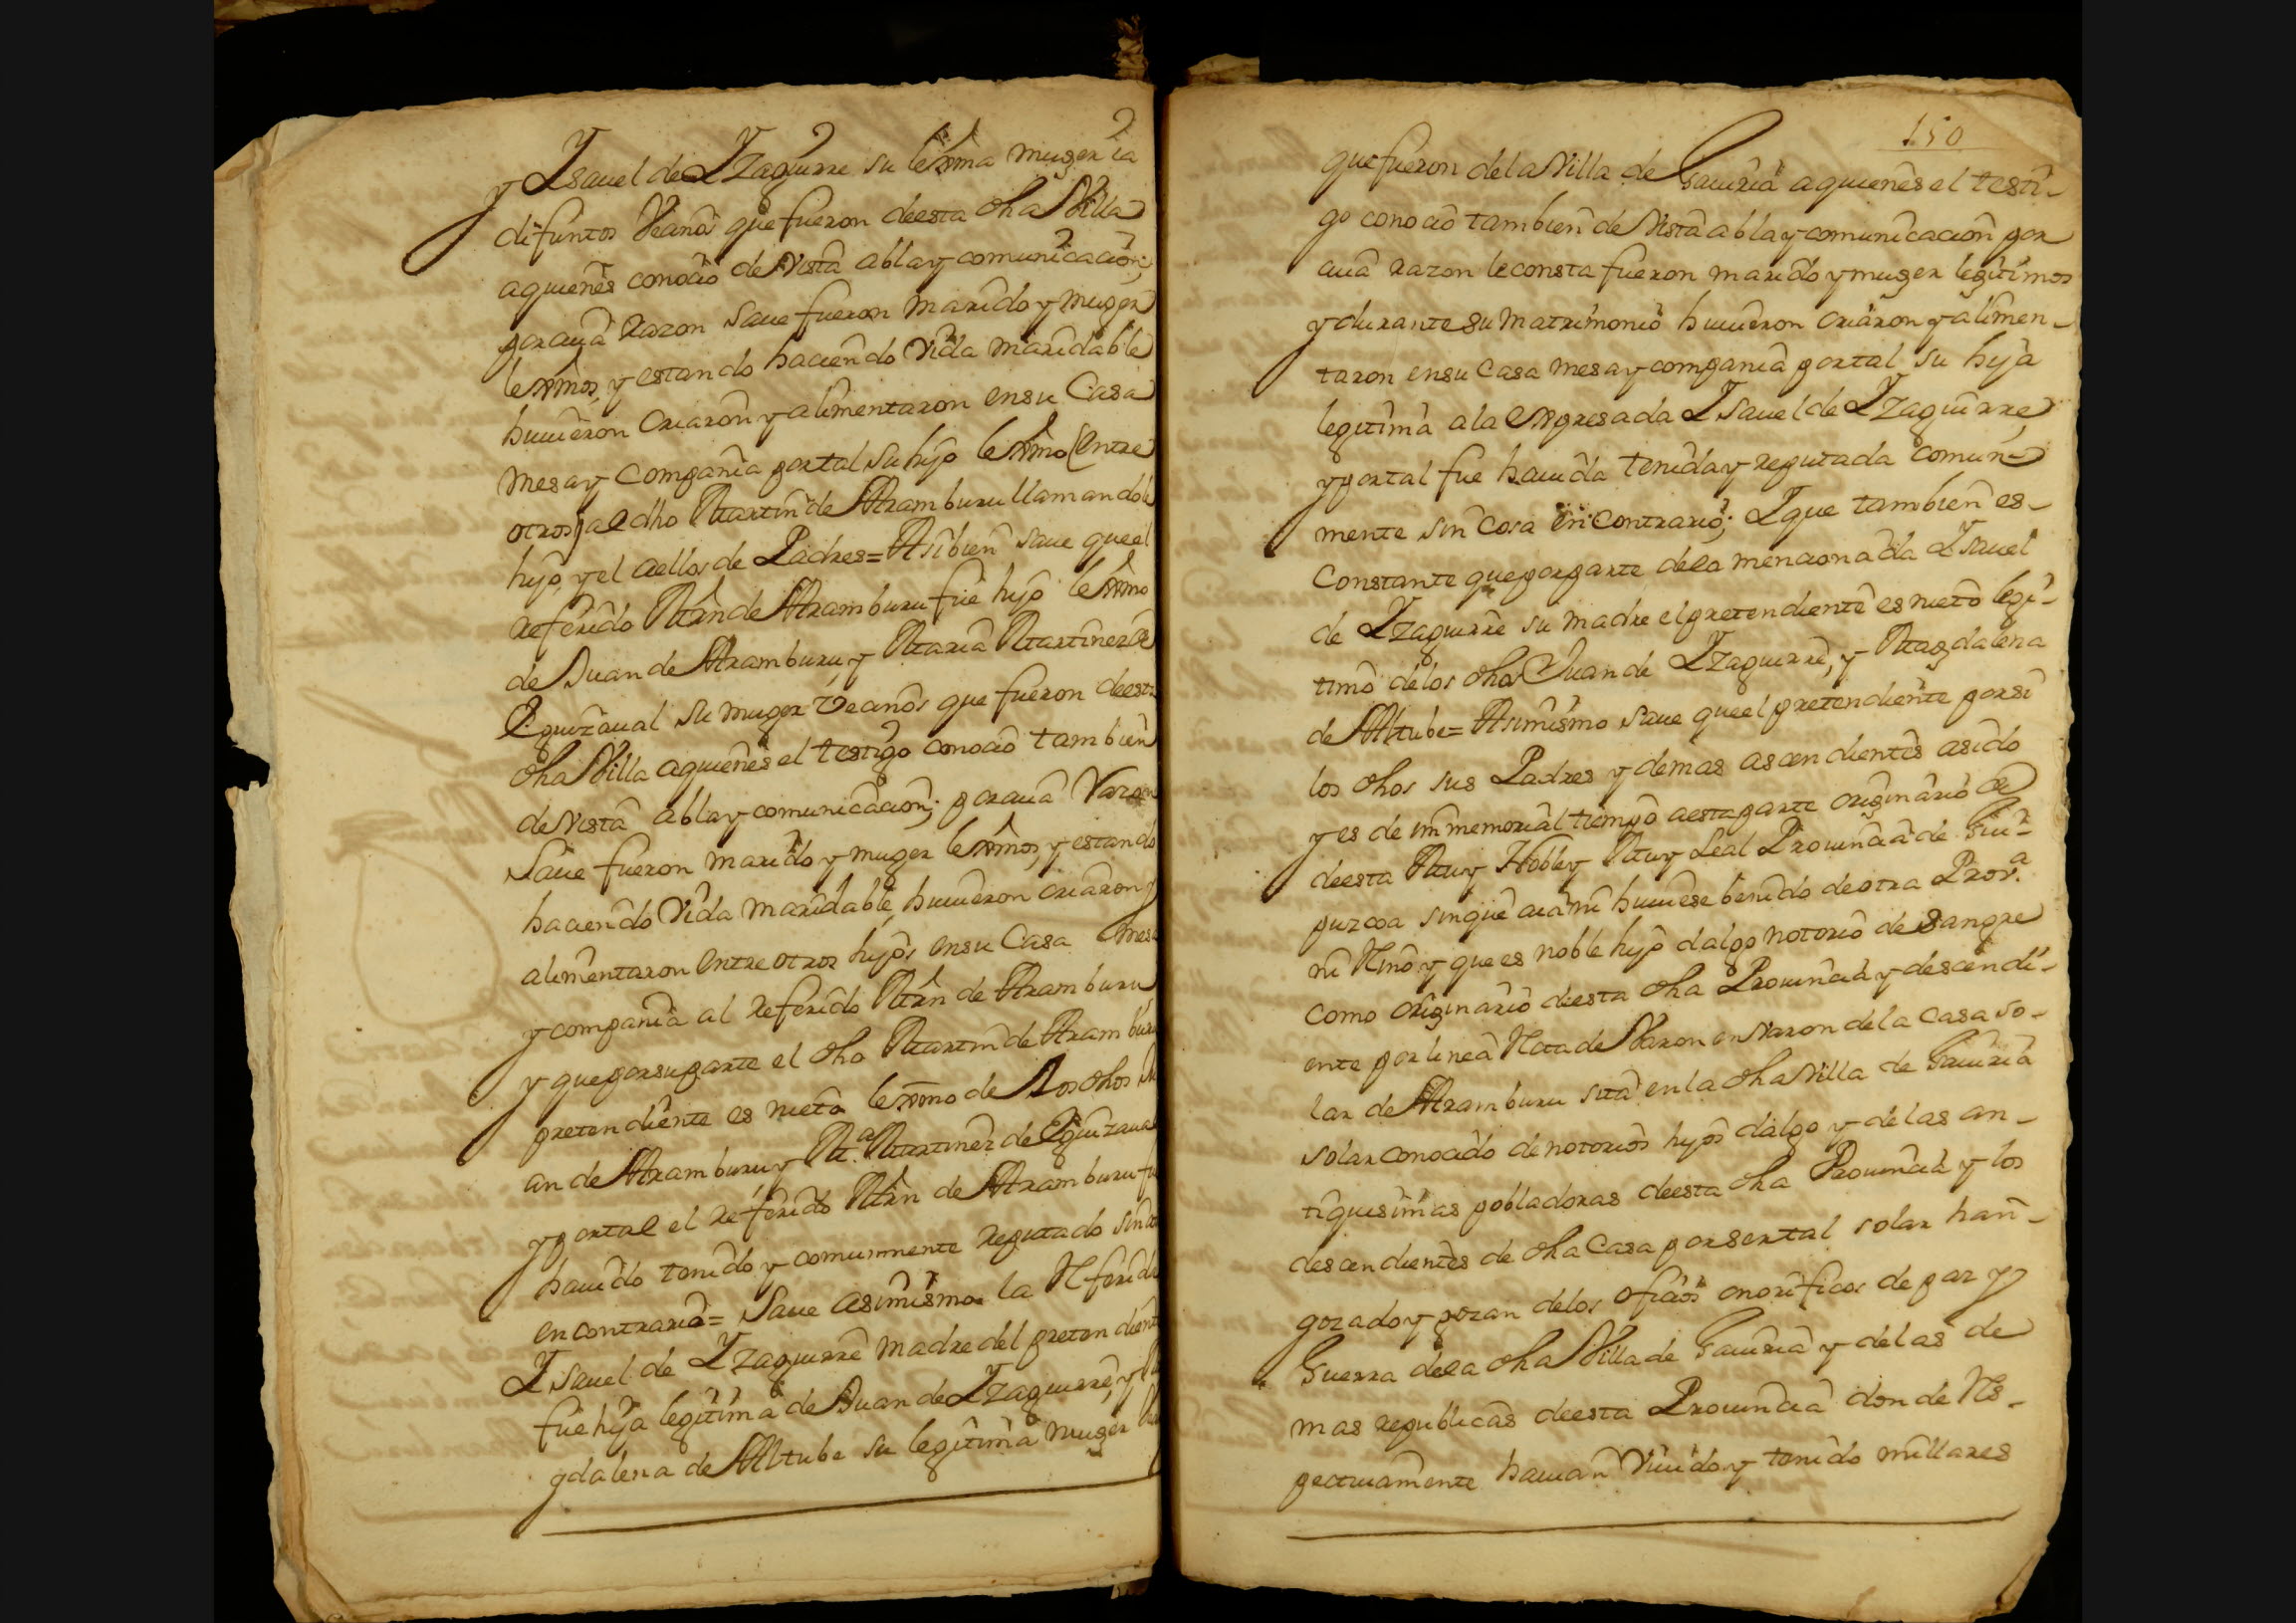 y Ysauel de Yzaguirre su lexma muger ia
difuntos Veanos que fueron deesta dha Villa
aquienes conoçio de vista abla y comunicacion;
por cuia Razon saue fueron marido y muger
lexmos, y estando haciendo Vida maridable
huuieron criaron y alimentaron en su Casa
mesa y compania por tal su hijo lexmo (entre
otros) al dho Martin de Aramburu llamandole
hijo, y el a ellos de Padres = Asibien saue que el
referido Mrn de Aramburu fue hijo lexmo
de Juan de Aramburu y Maria Martinez de
Eguizaual su muger Veanos que fueron deesta
dha Villa aquienes el testigo conoçio tambien
de vista abla y comunicacion; por cuia Razon
saue fueron marido y muger lexmos, y estando
haciendo Vida maridable, huuieron criaron y
alimentaron entre otros hijos en su Casa mesa
y compania al referido Mrn de Aramburu
y que por su parte el dho Martin de Aramburu
pretendiente es nieto lexmo de los dhos Ju
an de Aramburu y Ma. Martinez de Eguizaual
y por tal el referido Mrn de Aramburu fu
hauido tenido y comunmente reputado sin
en contrario = Saue asimismo la Referida
Ysauel de Yzaguirre madre del pretendiente
fue hija legitima de Juan de Yzaguirre, y Ma
gdalena de Altube su legitima muger
150
que fueron dela Villa de Gauiria aquienes el testi-
go conoçio tambien de vista abla y comunicacion por
cuia razon le consta fueron marido y muger legitimos
y durante su matrimonio huuieron criaron y alimen-
taron en su Casa mesa y compania por tal su hija
legitima ala expresada Ysauel de Yzaguirre,
y por tal fue hauida tenida y reputada comun-
mente sin cosa en contrario; Y que tambien es-
constante que por parte dela mencionada Ysauel
de Yzaguirre su madre el pretendiente es nieto legi-
timo delos dhos Juan de Yzaguirre, y Magdalena
de Altube = Asimismo saue que el pretendiente por si
los dhos sus Padres y demas ascendientes asido
y es de immemorial tiempo aesta parte originario de
deesta Muy Noble y Muy Leal Prouincia de Gui-
puzcoa sin que aia ni huuiese benido de otra Prova.
ni Rno y que es noble hijo dalgo notorio de sangre
como originario deesta dha Prouincia y descendi-
ente por linea Rcta de Varon en Varon dela casa so-
lar de Aramburu sita en la dha Villa de Gauiria
solar conocido de notorios hijos dalgo y de las an-
tiquisimas pobladoras deesta dha Prouincia y los
descendientes de dha Casa por ser tal solar han-
gozado y gozan delos oficios onorificos de paz y
Guerra dela dha Villa de Gauiria y de las de
mas republicas deesta Prouincia donde Rs-
pectiuamente hauian viuido y tenido millares